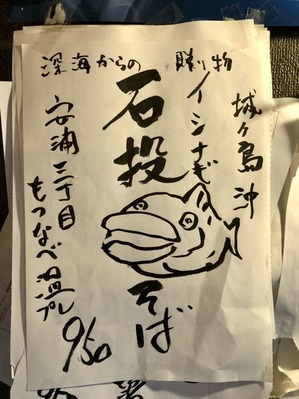 深海からの 贈り物
城ヶ島沖
イシナギ
石投
そば
安浦三丁目
もつなべ温プレ
950